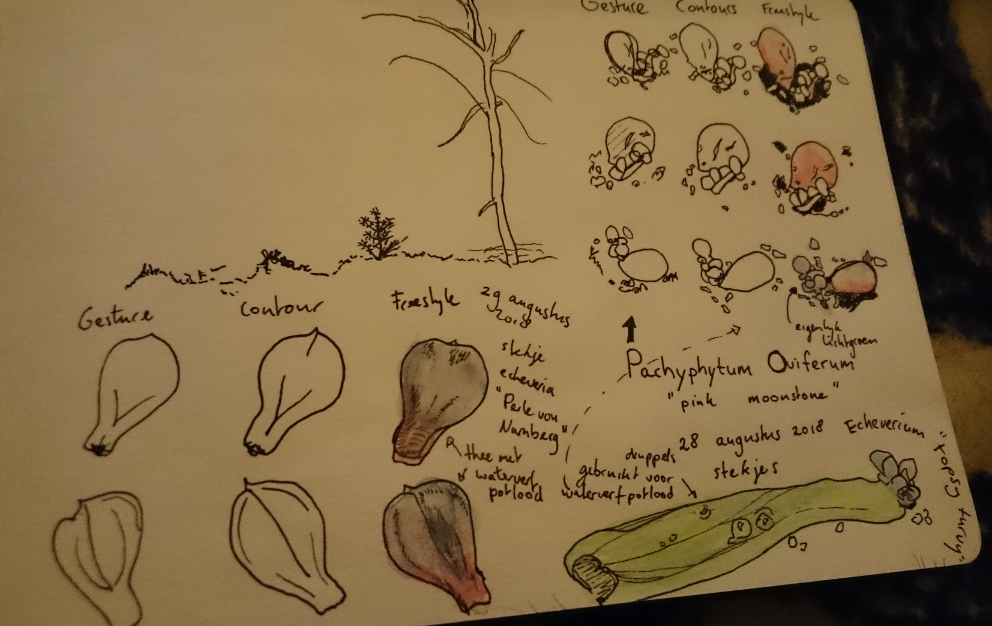 Gesture Contours Freestyle
eigenlijk
lichtgroen
Pachyphytum Oviferum
"pink moonstone"
28 augustus 2018 Echeverium
stekjes "topsy turvy"
druppels
gebruikt voor
watervert potlood
Gesture Contour Freestyle 29 augustus
2018
stekje
echeveria
"Perle von
Nurnberg"
thee met
watervert
potlood